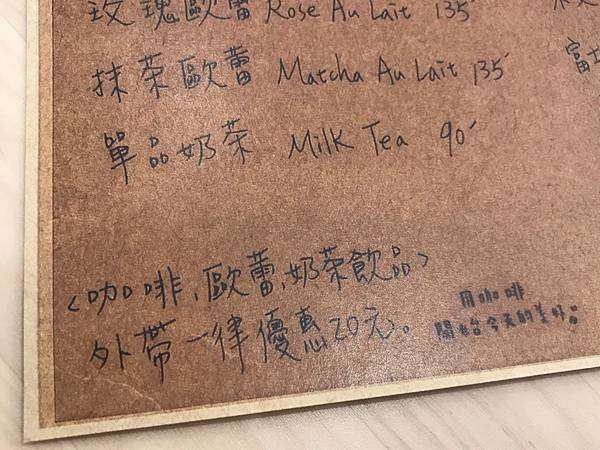 玫瑰歐蕾 Rose Au Lait 135
抹茶歐蕾 Matcha Au Lait 135
單品奶茶 Milk Tea 90
<咖啡、歐蕾、奶茶飲品>
外帶一律優惠20元。
用咖啡
開始今天的美好
富士